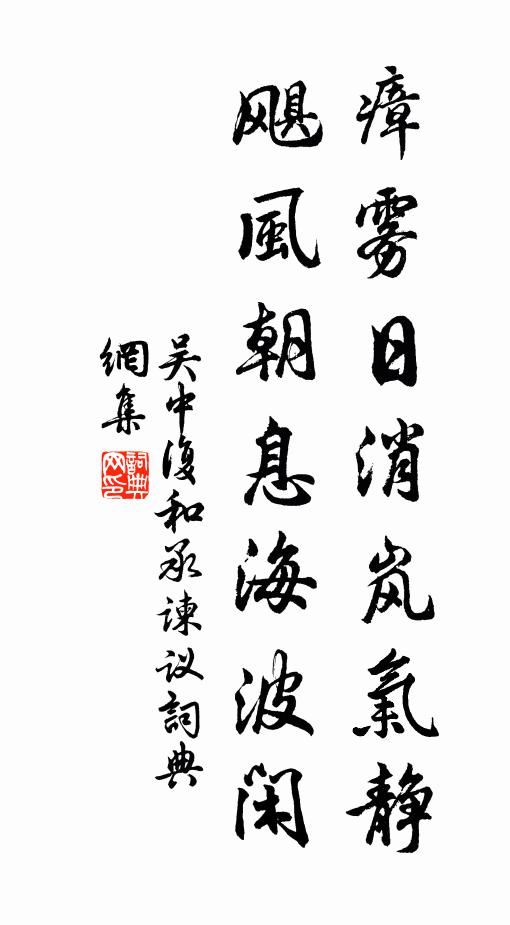 瘴雾日消岚氣静
飓風朝息海波闲
吴中復和承諫议詞典
網集
詞典网印